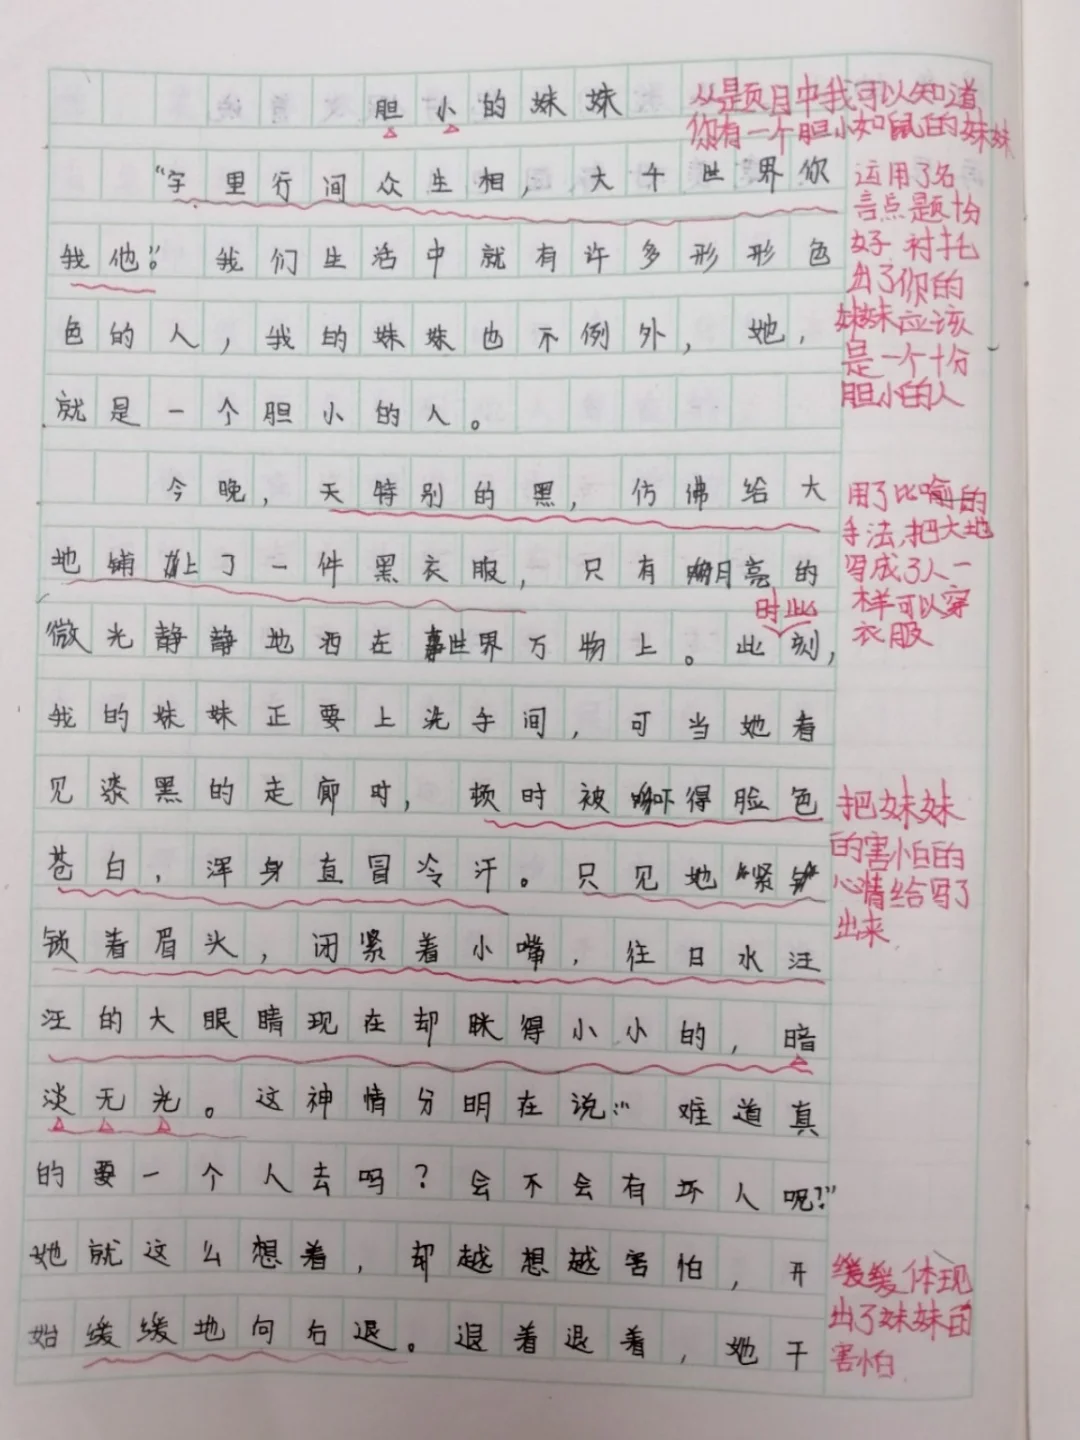 胆小的妹妹
从是页目中我可以知道
你有一个胆小如鼠的妹妹
“字里行间众生相，大千世界你
我他”。我们生活中就有许多形形色
色的人，我的妹妹也不例外，她，
就是一个胆小的人。
运用了名
言点题十份
好衬托
出了你的
妹妹应该
是一个十分
胆小的人
今晚，天特别的黑，仿佛给大
地铺上了一件黑衣服，只有月亮的
时此
微光静静地洒在世界万物上。此刻，
用了比喻的
手法，把大地
写成了人一
样可以穿
衣服
我的妹妹正要上洗手间，可当她看
见漆黑的走廊时，顿时被吓得脸色
苍白，浑身直冒冷汗。只见她紧
锁着眉头，闭紧着小嘴，往日水汪
汪的大眼睛现在却眯得小小的，暗
淡无光。这神情分明在说：“难道真
的要一个人去吗？会不会有坏人呢？”
把妹妹
的害怕的
心情给写了
出来
她就这么想着，却越想越害怕，开
始缓缓地向后退。退着退着，她干
缓缓体现
出了妹妹的
害怕